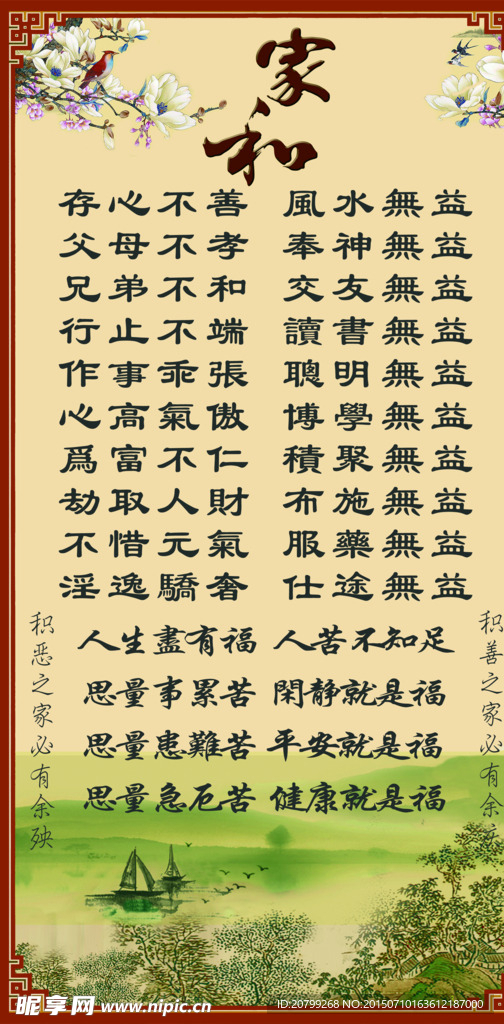 家和
存心不善 風水無益
父母不孝 奉神無益
兄弟不和 交友無益
行止不端 讀書無益
作事乖張 聰明無益
心高氣傲 博學無益
爲富不仁 積聚無益
劫取人財 布施無益
不惜元氣 服藥無益
淫逸驕奢 仕途無益
人生盡有福 人苦不知足
思量事累苦 閑静就是福
思量患難苦 平安就是福
思量急厄苦 健康就是福
积善之家必有余
积恶之家必有余殃
昵享网 www.nipic.cn
ID:20799268 NO:20150710163612187000